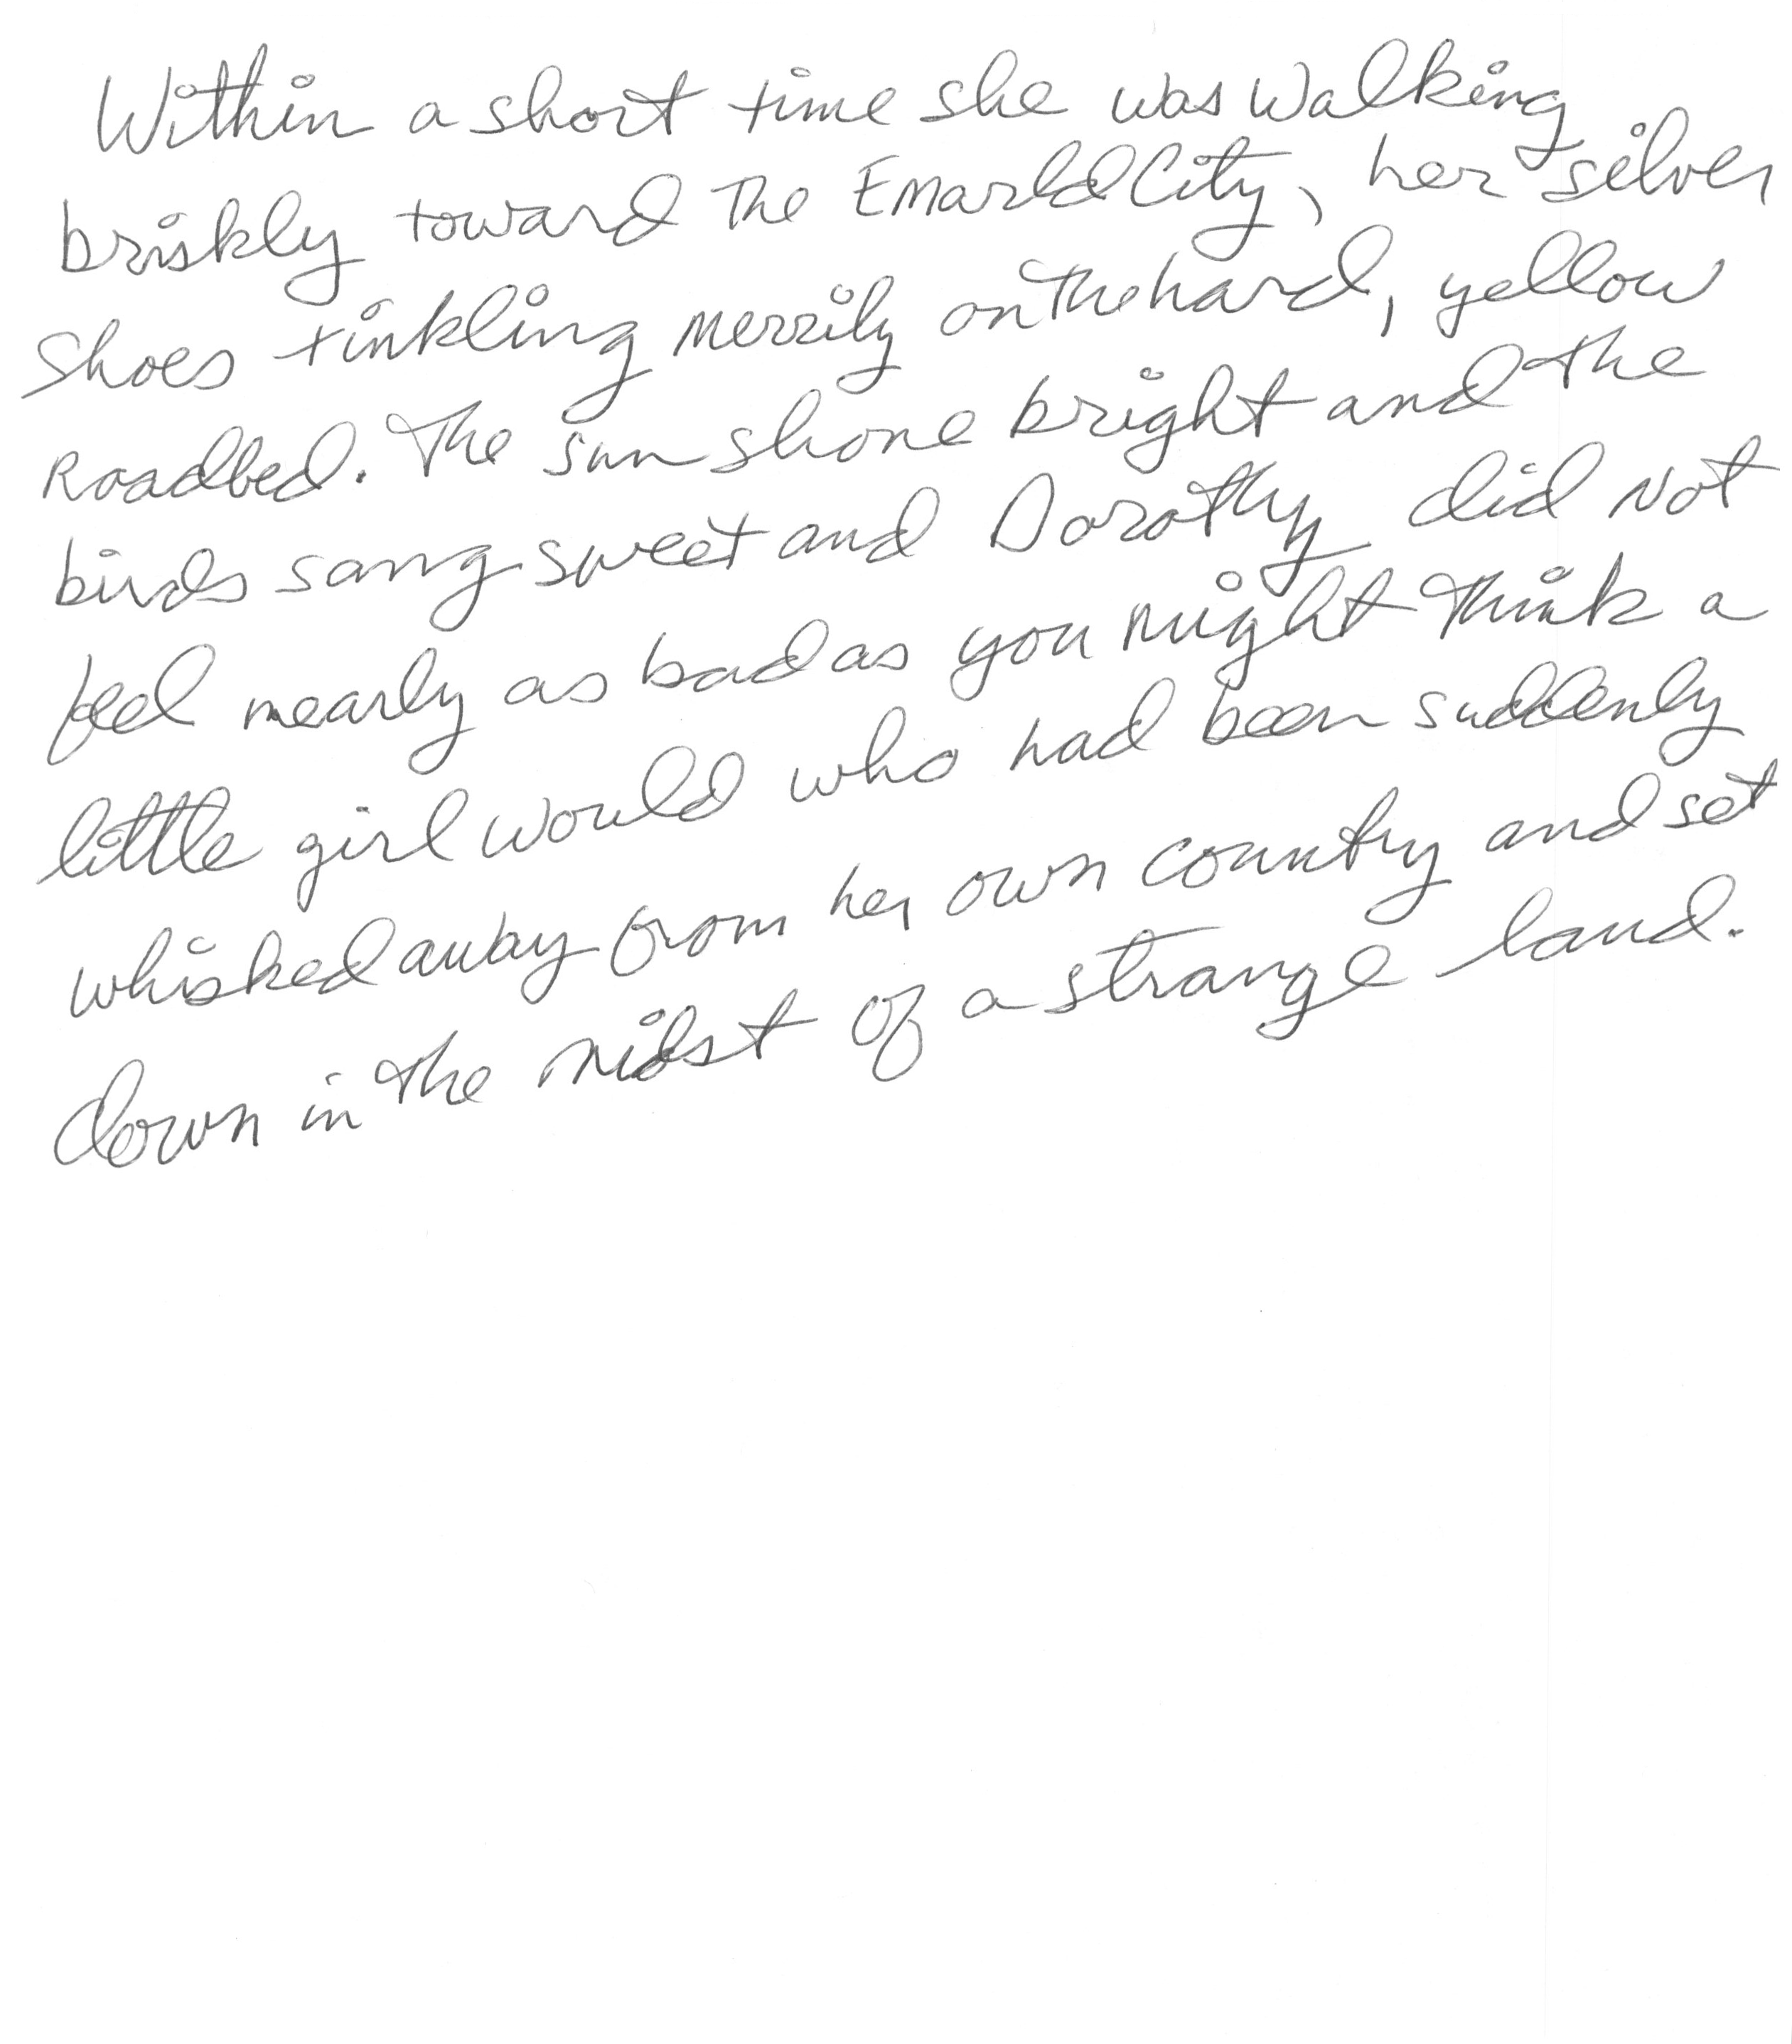 Within a short time she was walking
briskly toward The Emarld City, her silver
shoes tinkling merrily on the hard, yellow
Roadbed. The sun shone bright and the
birds sang sweet and Dorothy did not
feel nearly as bad as you might think a
little girl would who had been suddenly
whisked away from her own country and set
down in the midst of a strange land.